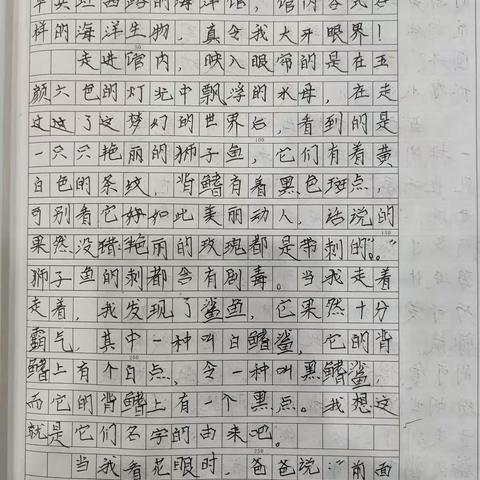 样的海洋生物，真令我大开眼界！
50
走进馆内，映入眼帘的是在五
颜六色的灯光中飘浮的水母，在走
过这了这梦幻的世界后，看到的是
100
一只只艳丽的狮子鱼，它们有着黄
白色的条纹，背鳍有着黑色斑点，
可别看它好如此美丽动人，俗说的
150
果然没错：“艳丽的玫瑰都是带刺的。”
狮子鱼的刺都含有剧毒。当我走着
走着，我发现了鲨鱼，它果然十分
霸气，其中一种叫白鳍鲨，它的背
200
鳍上有个白点，令一种叫黑鳍鲨，
而它的背鳍上有一个黑点。我想这
就是它们名字的由来吧。
250
当我看花眼时，爸爸说：“前面